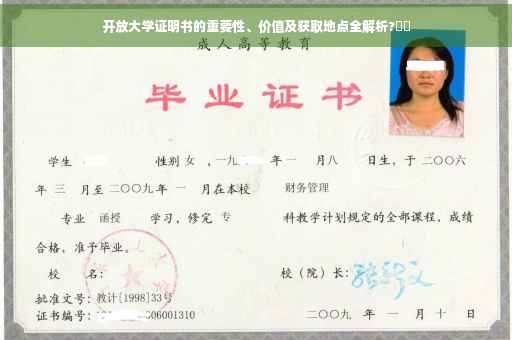 开放大学证明书的重要性、价值及获取地点全解析?
成人高等教育
毕业证书
学生 性别 女 ，一九 年 一 月八 日生，于 二〇〇六
年 三 月至 二〇〇九 年 一 月在本校 财务管理
专业 函授 学习，修完 专 科教学计划规定的全部课程，成绩
合格，准予毕业。
校 名： 校（院）长：
批准文号：教计[1998]33号
证书编号： 06001310 二〇〇九 年 一 月 十 日